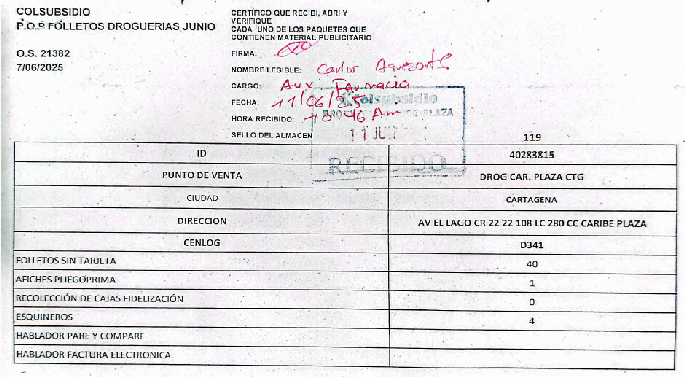 COLSUBSIDIO
P.O.P FOLLETOS DROGUERIAS JUNIO
O.S. 21382
7/06/2025
CERTIFICO QUE RECIBI, ABRI Y
VERIFIQUE
CADA UNO DE LOS PAQUETES QUE
CONTIENEN MATERIAL PUBLICITARIO
FIRMA:
NOMBRE LEGIBLE: Carlos
CARGO: Aux. Farmacia
FECHA: 11/06/25
HORA RECIBIDO: 10:46 Am
SELLO DEL ALMACEN
Colsubsidio
PLAZA
11 JUN
RECIBIDO
119
ID 40283815
PUNTO DE VENTA DROG CAR. PLAZA CTG
CIUDAD CARTAGENA
DIRECCION AV EL LAGO CR 22 22 108 LC 280 CC CARIBE PLAZA
CENLOG D341
FOLLETOS SIN TABULLA 40
AFICHES PLIEGOPRIMA 1
RECOLECCIÓN DE CAJAS FIDELIZACIÓN 0
ESQUINEROS 4
HABLADOR PARE Y COMPARE
HABLADOR FACTURA ELECTRONICA